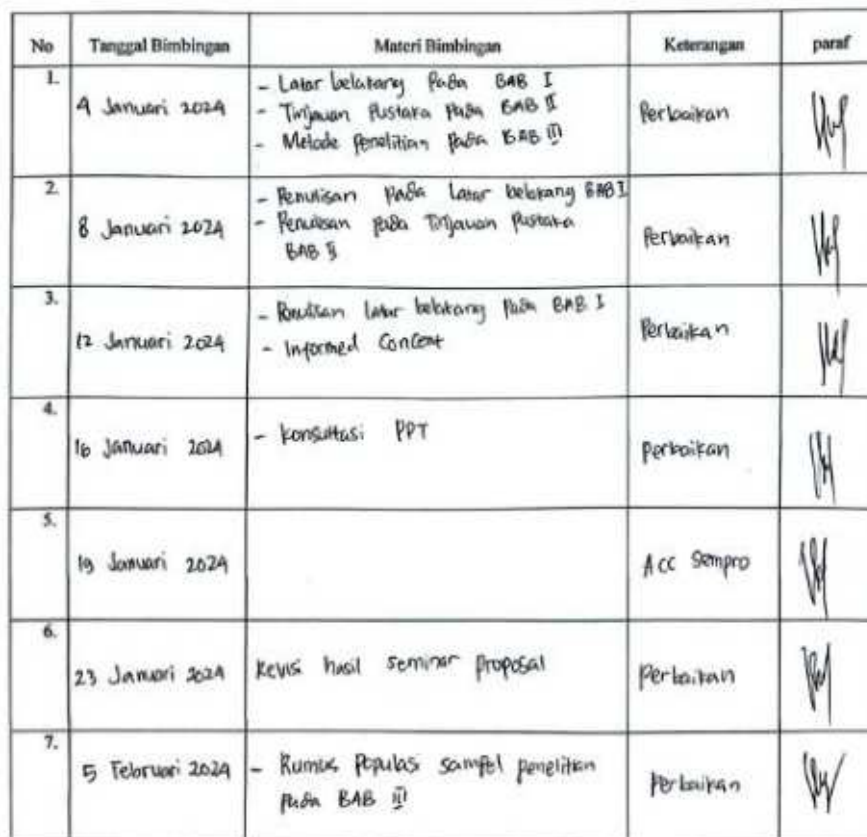 No Tanggal Bimbingan Materi Bimbingan Keterangan paraf
1.
4 Januari 2024
- Latar belakang pada BAB I
- Tinjauan Pustaka pada BAB II
- Metode penelitian pada BAB III
Perbaikan
2.
8 Januari 2024
- Penulisan pada latar belakang BAB I
- Penulisan pada Tinjauan Pustaka
BAB II
Perbaikan
3.
12 Januari 2024
- Penulisan latar belakang pada BAB I
- Informed Concent
Perbaikan
4.
16 Januari 2024
- konsultasi PPT
perbaikan
5.
19 Januari 2024
Acc sempro
6.
23 Januari 2024
Revisi hasil seminar proposal
Perbaikan
7.
5 Februari 2024
- Rumus Populasi sampel penelitian
pada BAB III
Perbaikan